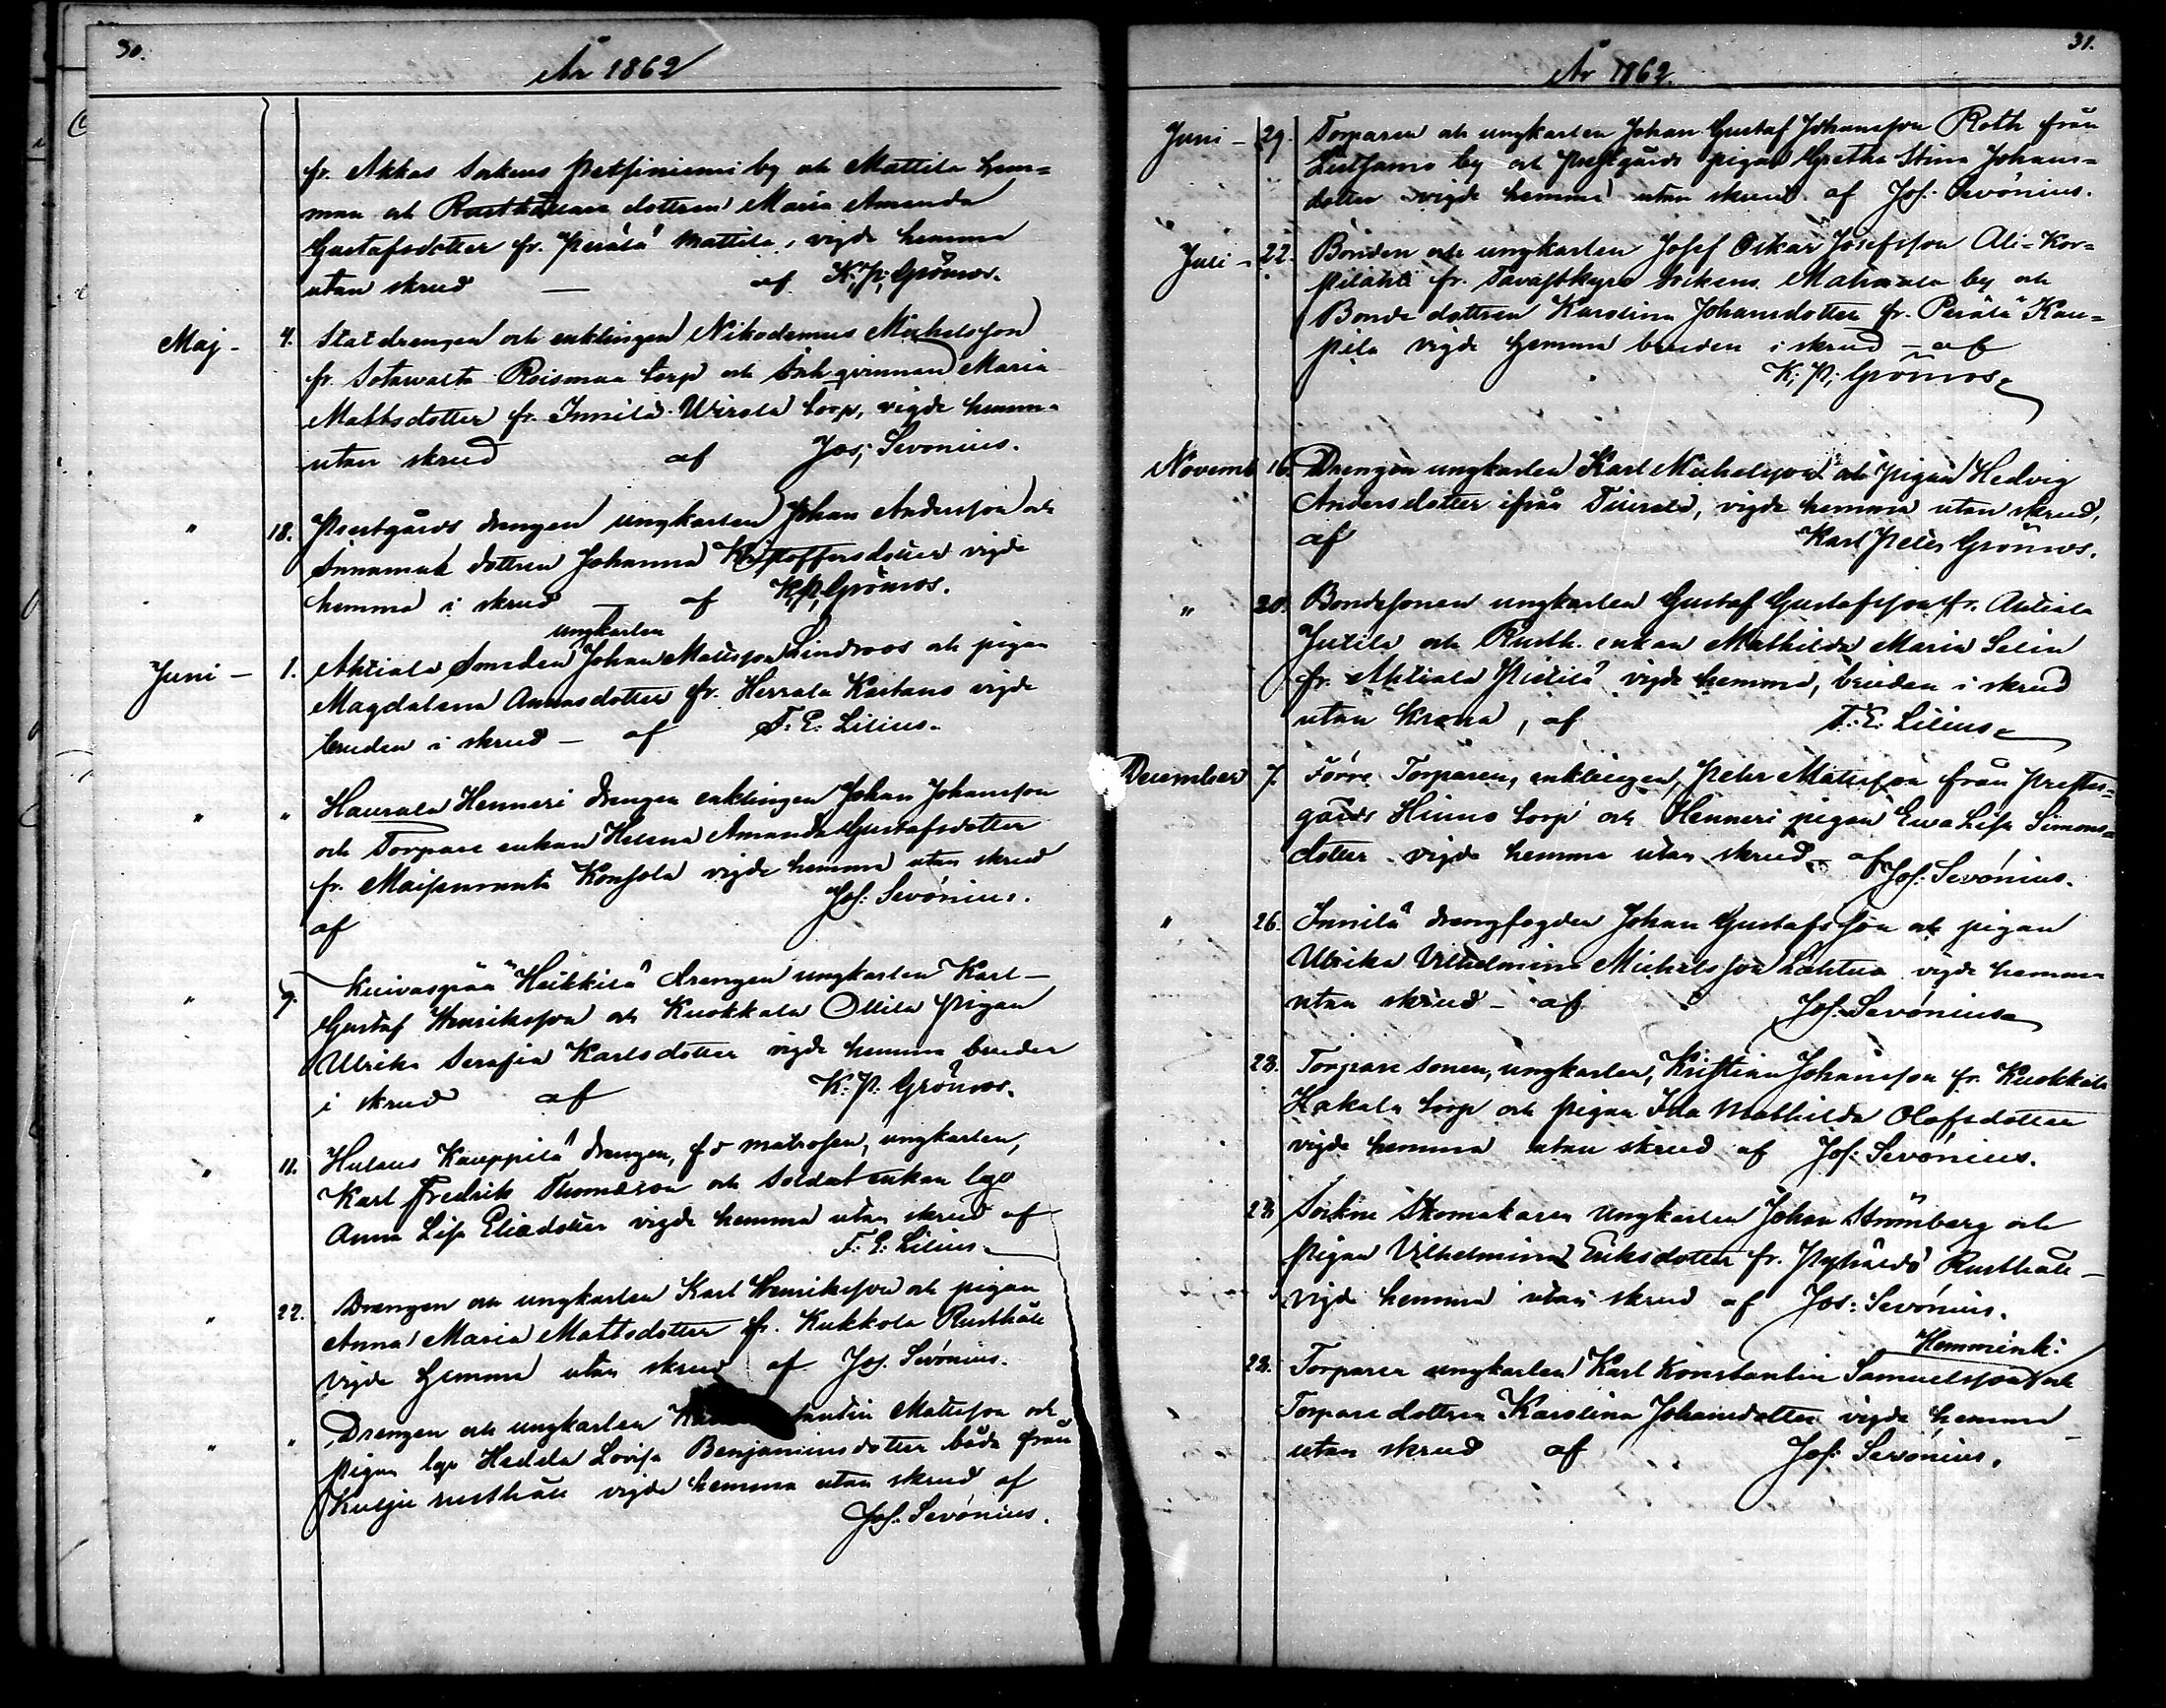 30.
År 1862
fr. Akkas sockens Pätsiniemi by och Mattila hem=
man och Rusthållare dottren Maria Amanda
Gustafsdotter fr. Perälä Mattila, vigde hemma
utan skrud — af K. P. Grönroos.
Maj - 4. Statdrengen och enklingen Nikodemus Michelsson
fr. Sotavalta Roismaa torp och Inh. qvinnan Maria
Mattsdotter fr. Innilä Wirola torp, vigde hemma
utan skrud af Jos. Sevonius.
" 18. Prestgårds drengen ungkarlen Johan Andersson och
dottren Johanna Kristoffersdotter vigde
hemma i skrud — af K. P. Grönroos.
ungkarlen
Juni - 1. Ahtiala Smeden Johan Mattsson Lindroos och pigan
Magdalena Annasdotter fr. Herrala Kastans vigde
bruden i skrud — af F. E. Lilius.
" " Haurala Henneri drengen enklingen Johan Johansson
och Torpare enkan Helena Amanda Gustafsdotter
fr. Konsola vigde hemma utan skrud
af Jos. Sevónius.
" 9. Kuivaspää Heikkilä drengen ungkarlen Karl
Gustaf Henriksson och Kuokkala Ollila pigan
Ulrika Serafia Karlsdotter vigde hemma bruden
i skrud af K. P. Grönroos.
" 11. Hulaus Kauppila drengen, f d matrosen, ungkarlen,
Karl Fredrik Thomasson och Soldat enkan lgo
Anna Lisa Eliadotter vigde hemma utan skrud af
F. E. Lilius.
" 22. Drengen och ungkarlen Karl Henriksson och pigan
Anna Maria Mattsdotter fr. Kukkola Rusthåll
vigde hemma utan skrud af Jos. Sevónius.
" " Drengen och ungkarlen Mattsson och
pigan lgo Hedda Lovisa Benjaminsdotter båda från
Kulju rusthåll vigde hemma utan skrud af
Jos. Sevónius.
31.
År 1862.
Juni - 29. Torparen och ungkarlen Johan Gustaf Johansson Roth från
by och prestgårds pigan Gretha Stina Johans=
dotter vigde hemma utan skrud af Jos. Sevónius.
Juli - 22. Bonden och ungkarlen Josef Oskar Josefsson Ali-Kor=
pilahti fr. Tavastkyro Sockens Mahnala by och
Bonde dottren Karolina Johansdotter fr. Perälä Kau=
pila vigde hemma bruden i skrud — af
K. P. Grönroos.
Novemb 16. Drengen ungkarlen Karl Michelsson och pigan Hedvig
Andersdotter ifrån vigde hemma utan skrud,
af Karl Peter Grönroos.
" 20. Bondesonen ungkarlen Gustaf Gustafsson fr. Anttiala
Jutila och Rusth. enkan Mathilda Maria Selin
fr. Ahtiala Pietilä vigde hemma, bruden i skrud
utan krona, af F. E. Lilius.
December 7. Förre Torparen, enklingen, Peter Mattsson från prest=
gårds Hiuno torp och Henneri pigan Eva Lisa Simons=
dotter vigde hemma utan skrud af Jos. Sevónius.
" 26. Innilä drengfogden Johan Gustafsson och pigan
Ulrika Vilhelmina Michelsson Lahtua vigde hemma
utan skrud — af Jos. Sevónius.
28. Torpare sonen, ungkarlen, Kristian Johansson fr. Kuokkala
Hakala torp och pigan Ida Mathilda Olofsdotter
vigde hemma utan skrud af Jos. Sevónius.
28. Sockne Skomakaren Ungkarlen Johan Strömberg och
pigan Vilhelmina Eriksdotter fr. Rusthåll
vigde hemma utan skrud af Jos. Sevónius.
Hemminki
28. Torparen ungkarlen Karl Konstantin Samuelsson och
Torpare dottren Karolina Johansdotter vigde hemma
utan skrud af Jos. Sevónius.